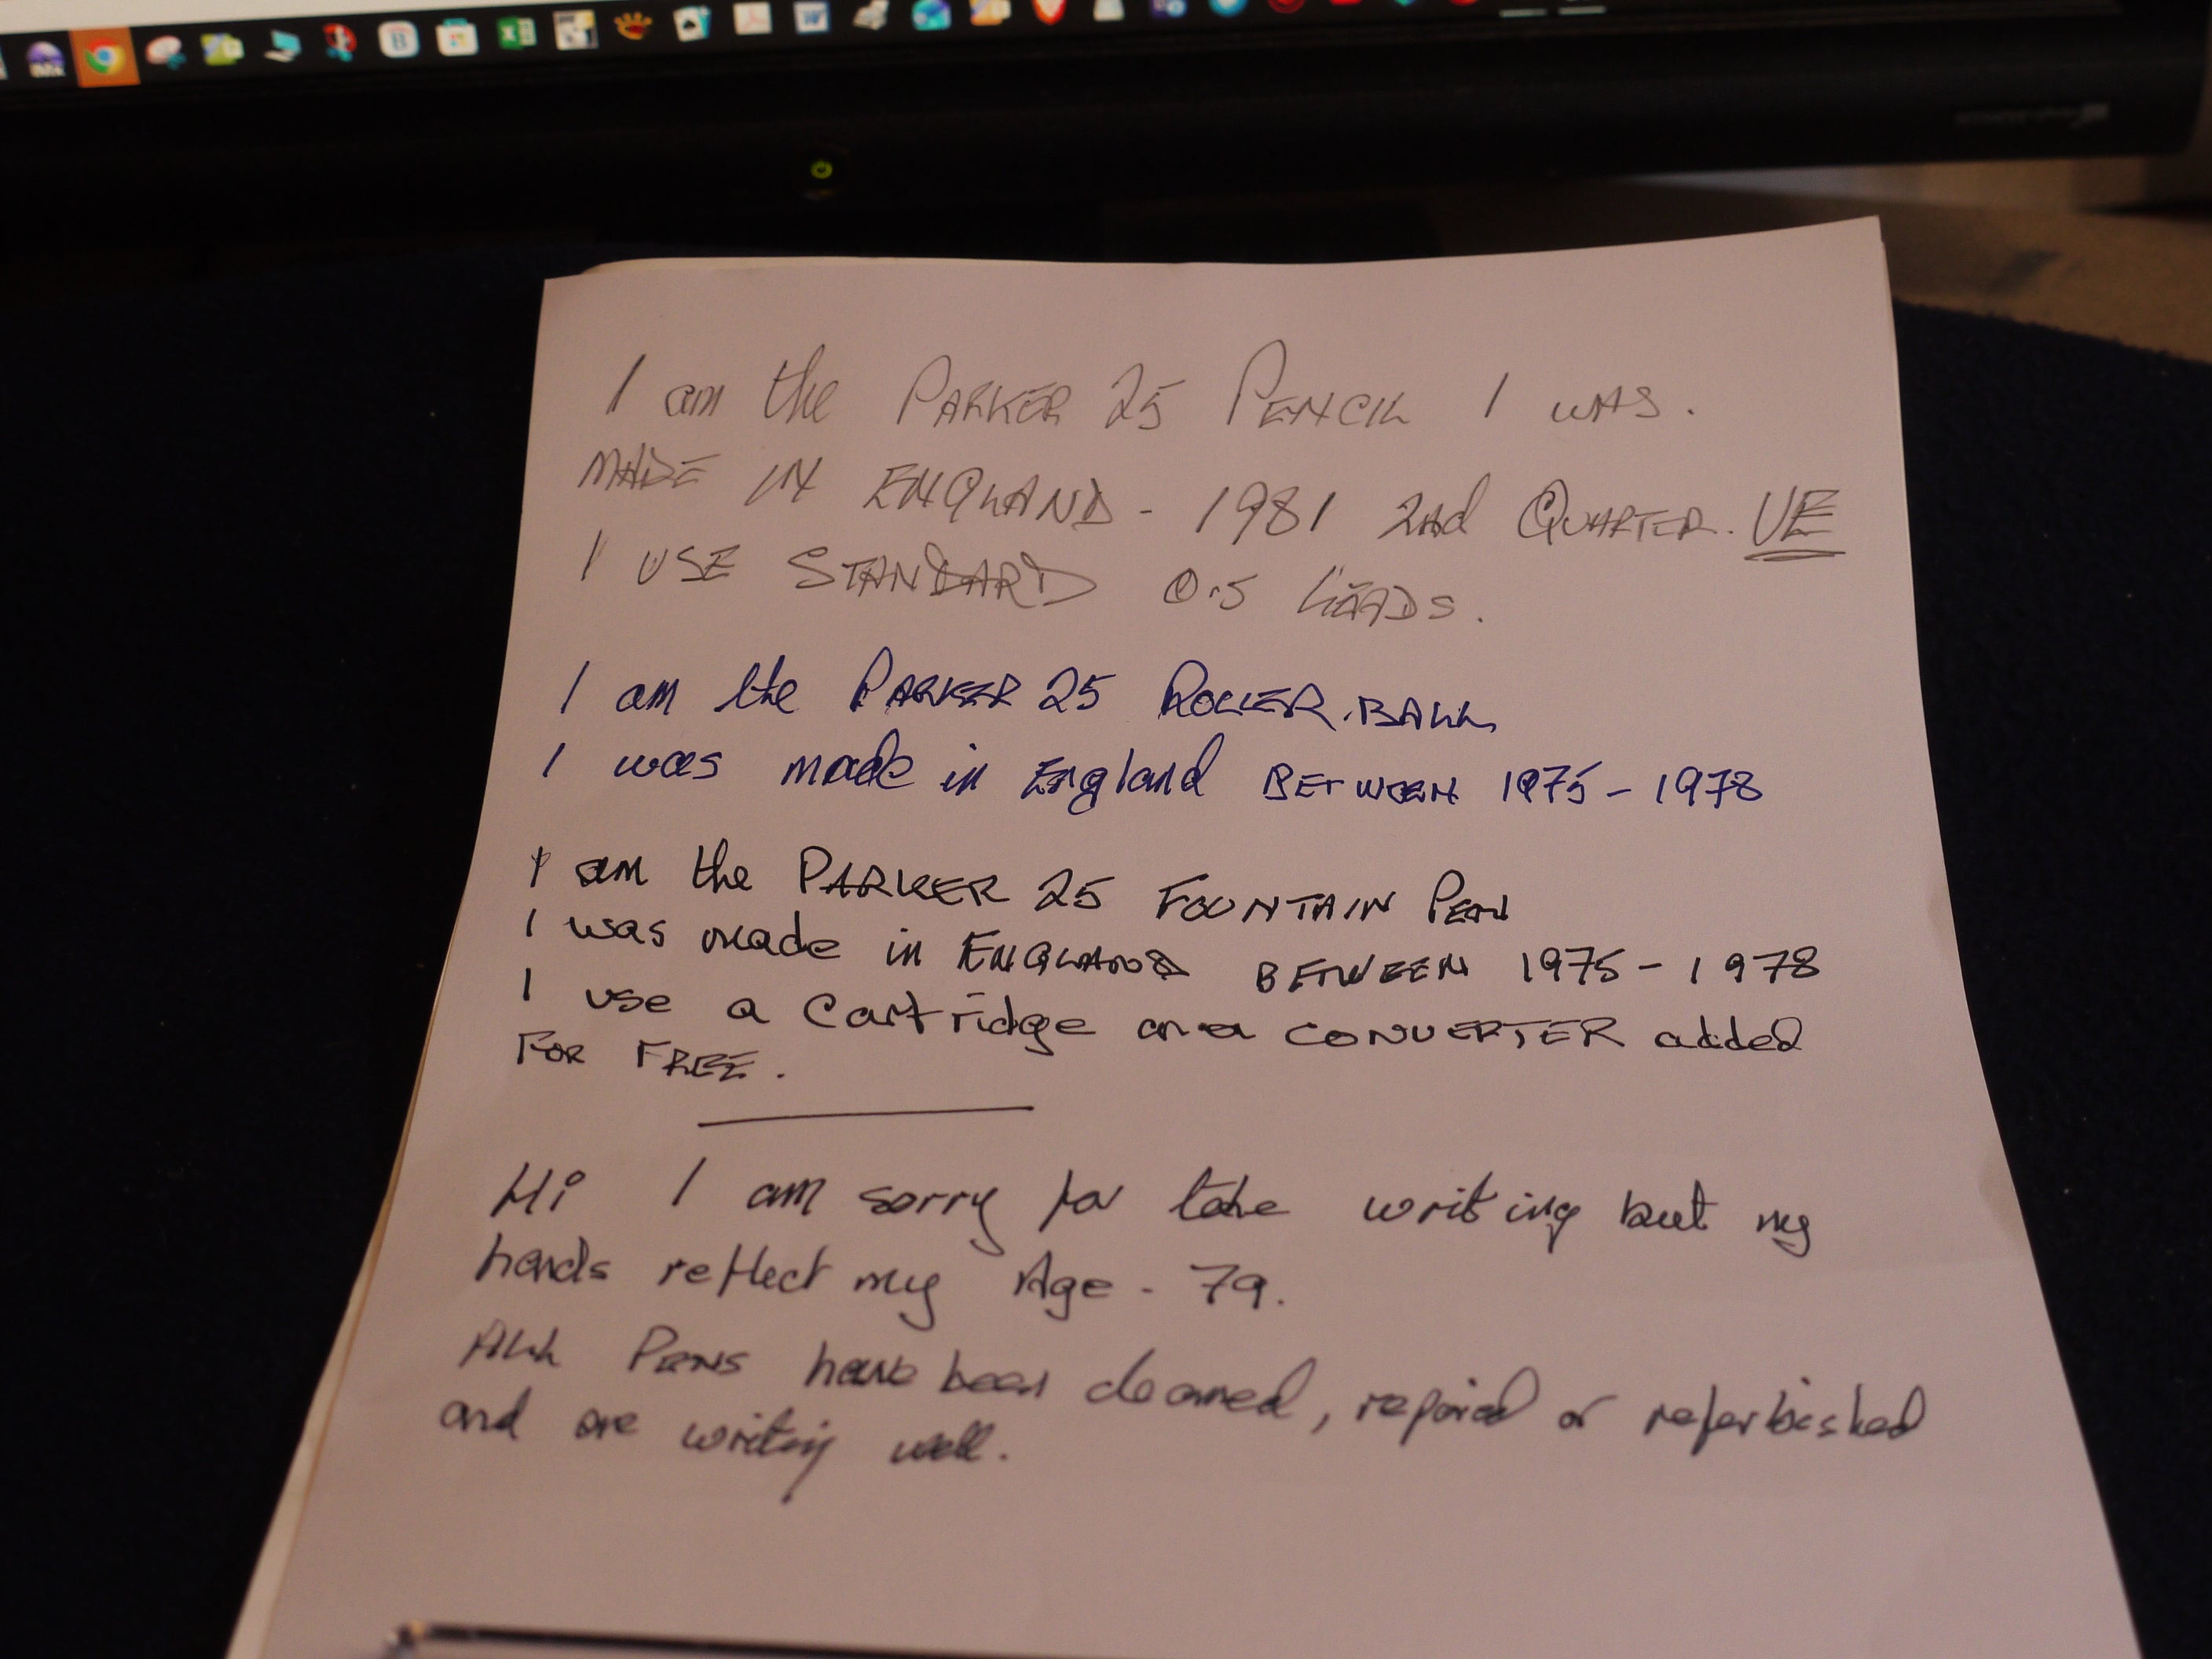 I am the PARKER 25 PENCIL I WAS.
MADE IN ENGLAND - 1981 2nd QUARTER. UE
I USE STANDARD 0.5 LEADS.
I am the PARKER 25 ROLLER.BALL
I was made in England BETWEEN 1975-1978
I am the PARKER 25 FOUNTAIN PEN
I was made in ENGLAND BETWEEN 1975-1978
I use a Cartridge a CONVERTER added
FOR FREE.
Hi I am sorry for writing but my
hands reflect my Age - 79.
ALL PENS have been cleaned, repaired or referbished
and are writing well.